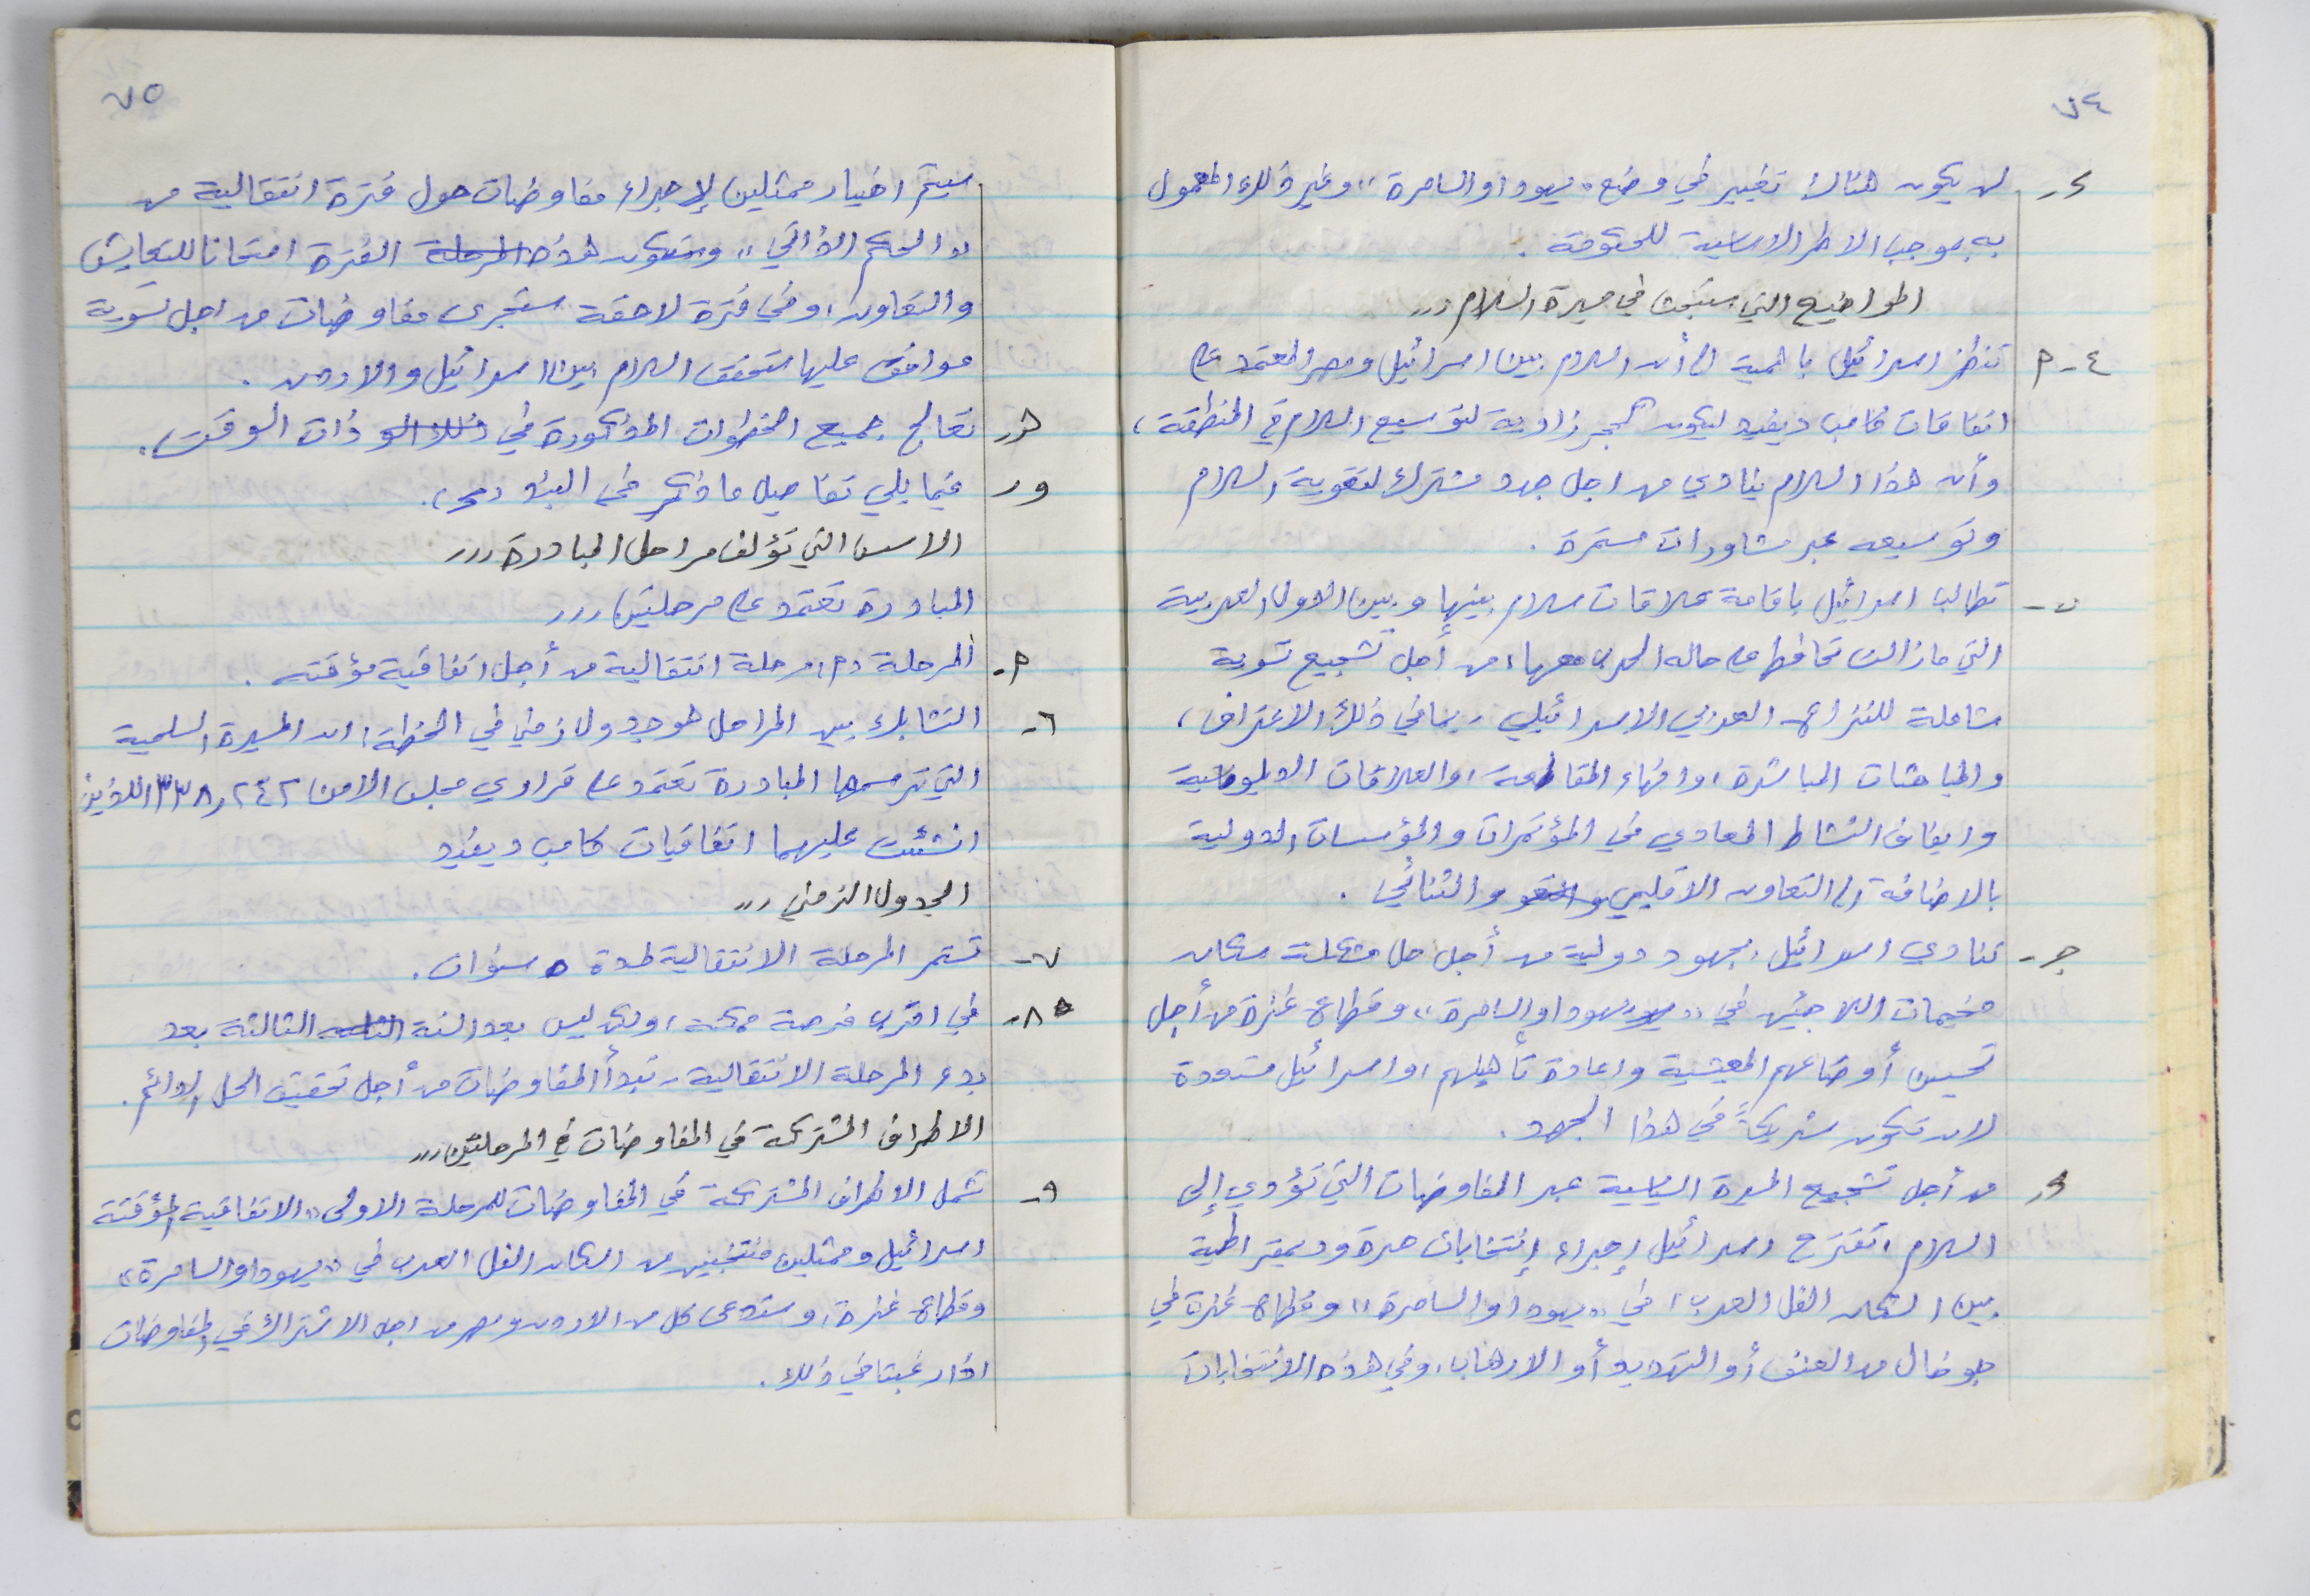 ٧٤
د- لن يكون هناك تغيير في وضع "يهودا والسامرة" وغير ذلك المعمول
به بموجب الاطر الاساسية للحكومة.
المواضيع التي ستبحث في مسيرة السلام...
٤- م تنظر اسرائيل باهمية الى أن السلام بين اسرائيل ومصر المعتمد على
اتفاقات كامب ديفيد ليكون كحجر زاوية لتوسيع السلام في المنطقة،
وأن هذا السلام ينادي من اجل جهد مشترك لتقوية السلام
وتوسيعه عبر مشاورات مستمرة.
ب- تطالب اسرائيل باقامة علاقات سلام بينها وبين الدول العربية
التي مازالت تحافظ على حالة الحرب معها، من أجل تشجيع تسوية
شاملة للنزاع العربي الاسرائيلي، بما في ذلك الاعتراف،
والمباحثات المباشرة، وانهاء المقاطعة، والعلاقات الدبلوماسية
وايقاف النشاط المعادي في المؤتمرات والمؤسسات الدولية
بالاضافة الى التعاون الاقليمي والثنائي.
ج- تنادي اسرائيل بجهود دولية من أجل حل مشكلة سكان
مخيمات اللاجئين في "يهودا والسامرة" وقطاع غزة من أجل
تحسين أوضاعهم المعيشية واعادة تأهيلهم، واسرائيل مستعدة
لان تكون شريكاً في هذا الجهد.
د- من أجل تشجيع المسيرة السياسية عبر المفاوضات التي تؤدي إلى
السلام، تقترح اسرائيل إجراء إنتخابات حرة وديمقراطية
بين السكان الفل العرب، في "يهودا والسامرة" وقطاع غزة في
جو خال من العنف أو التهديد أو الارهاب، وفي هذه الانتخابات
٧٥
سيتم اختيار ممثلين لإجراء مفاوضات حول فترة انتقالية من
"الحكم الذاتي" وستكون هذه المرحلة الفترة امتحانا للتعايش
والتعاون، وفي فترة لاحقة ستجرى مفاوضات من اجل تسوية
موافق عليها ستحقق السلام بين اسرائيل والاردن.
هـ- تعالج جميع الخطوات المذكورة في ذات الوقت.
و- فيما يلي تفاصيل ما ذكر في البند
الاسس التي تؤلف مراحل المبادرة...
المبادرة تعتمد على مرحلتين...
م- المرحلة (م) مرحلة انتقالية من أجل اتفاقية مؤقتة.
٦- التشابك بين المراحل هو جدول زمني في الخطة، ان المسيرة السلمية
التي ترسمها المبادرة تعتمد على قراري مجلس الامن ٢٤٢ و ٣٣٨ اللذين
انشئت عليهما اتفاقيات كامب ديفيد
الجدول الزمني...
٧- تستمر المرحلة الانتقالية لمدة ٥ سنوات.
٨- في اقرب فرصة ممكنة، ولكن ليس بعد السنة الثالثة بعد
بدء المرحلة الانتقالية، تبدأ المفاوضات من أجل تحقيق الحل الدائم.
الاطراف المشتركة في المفاوضات في المرحلتين...
٩- تشمل الاطراف المشتركة في المفاوضات للمرحلة الاولى "الاتفاقية المؤقتة
اسرائيل وممثلين منتخبين من السكان الفل العرب في "يهودا والسامرة"
وقطاع غزة، وستدعى كل من الاردن ومصر من اجل الاشتراك في المفاوضات
اذا رغبتا في ذلك.